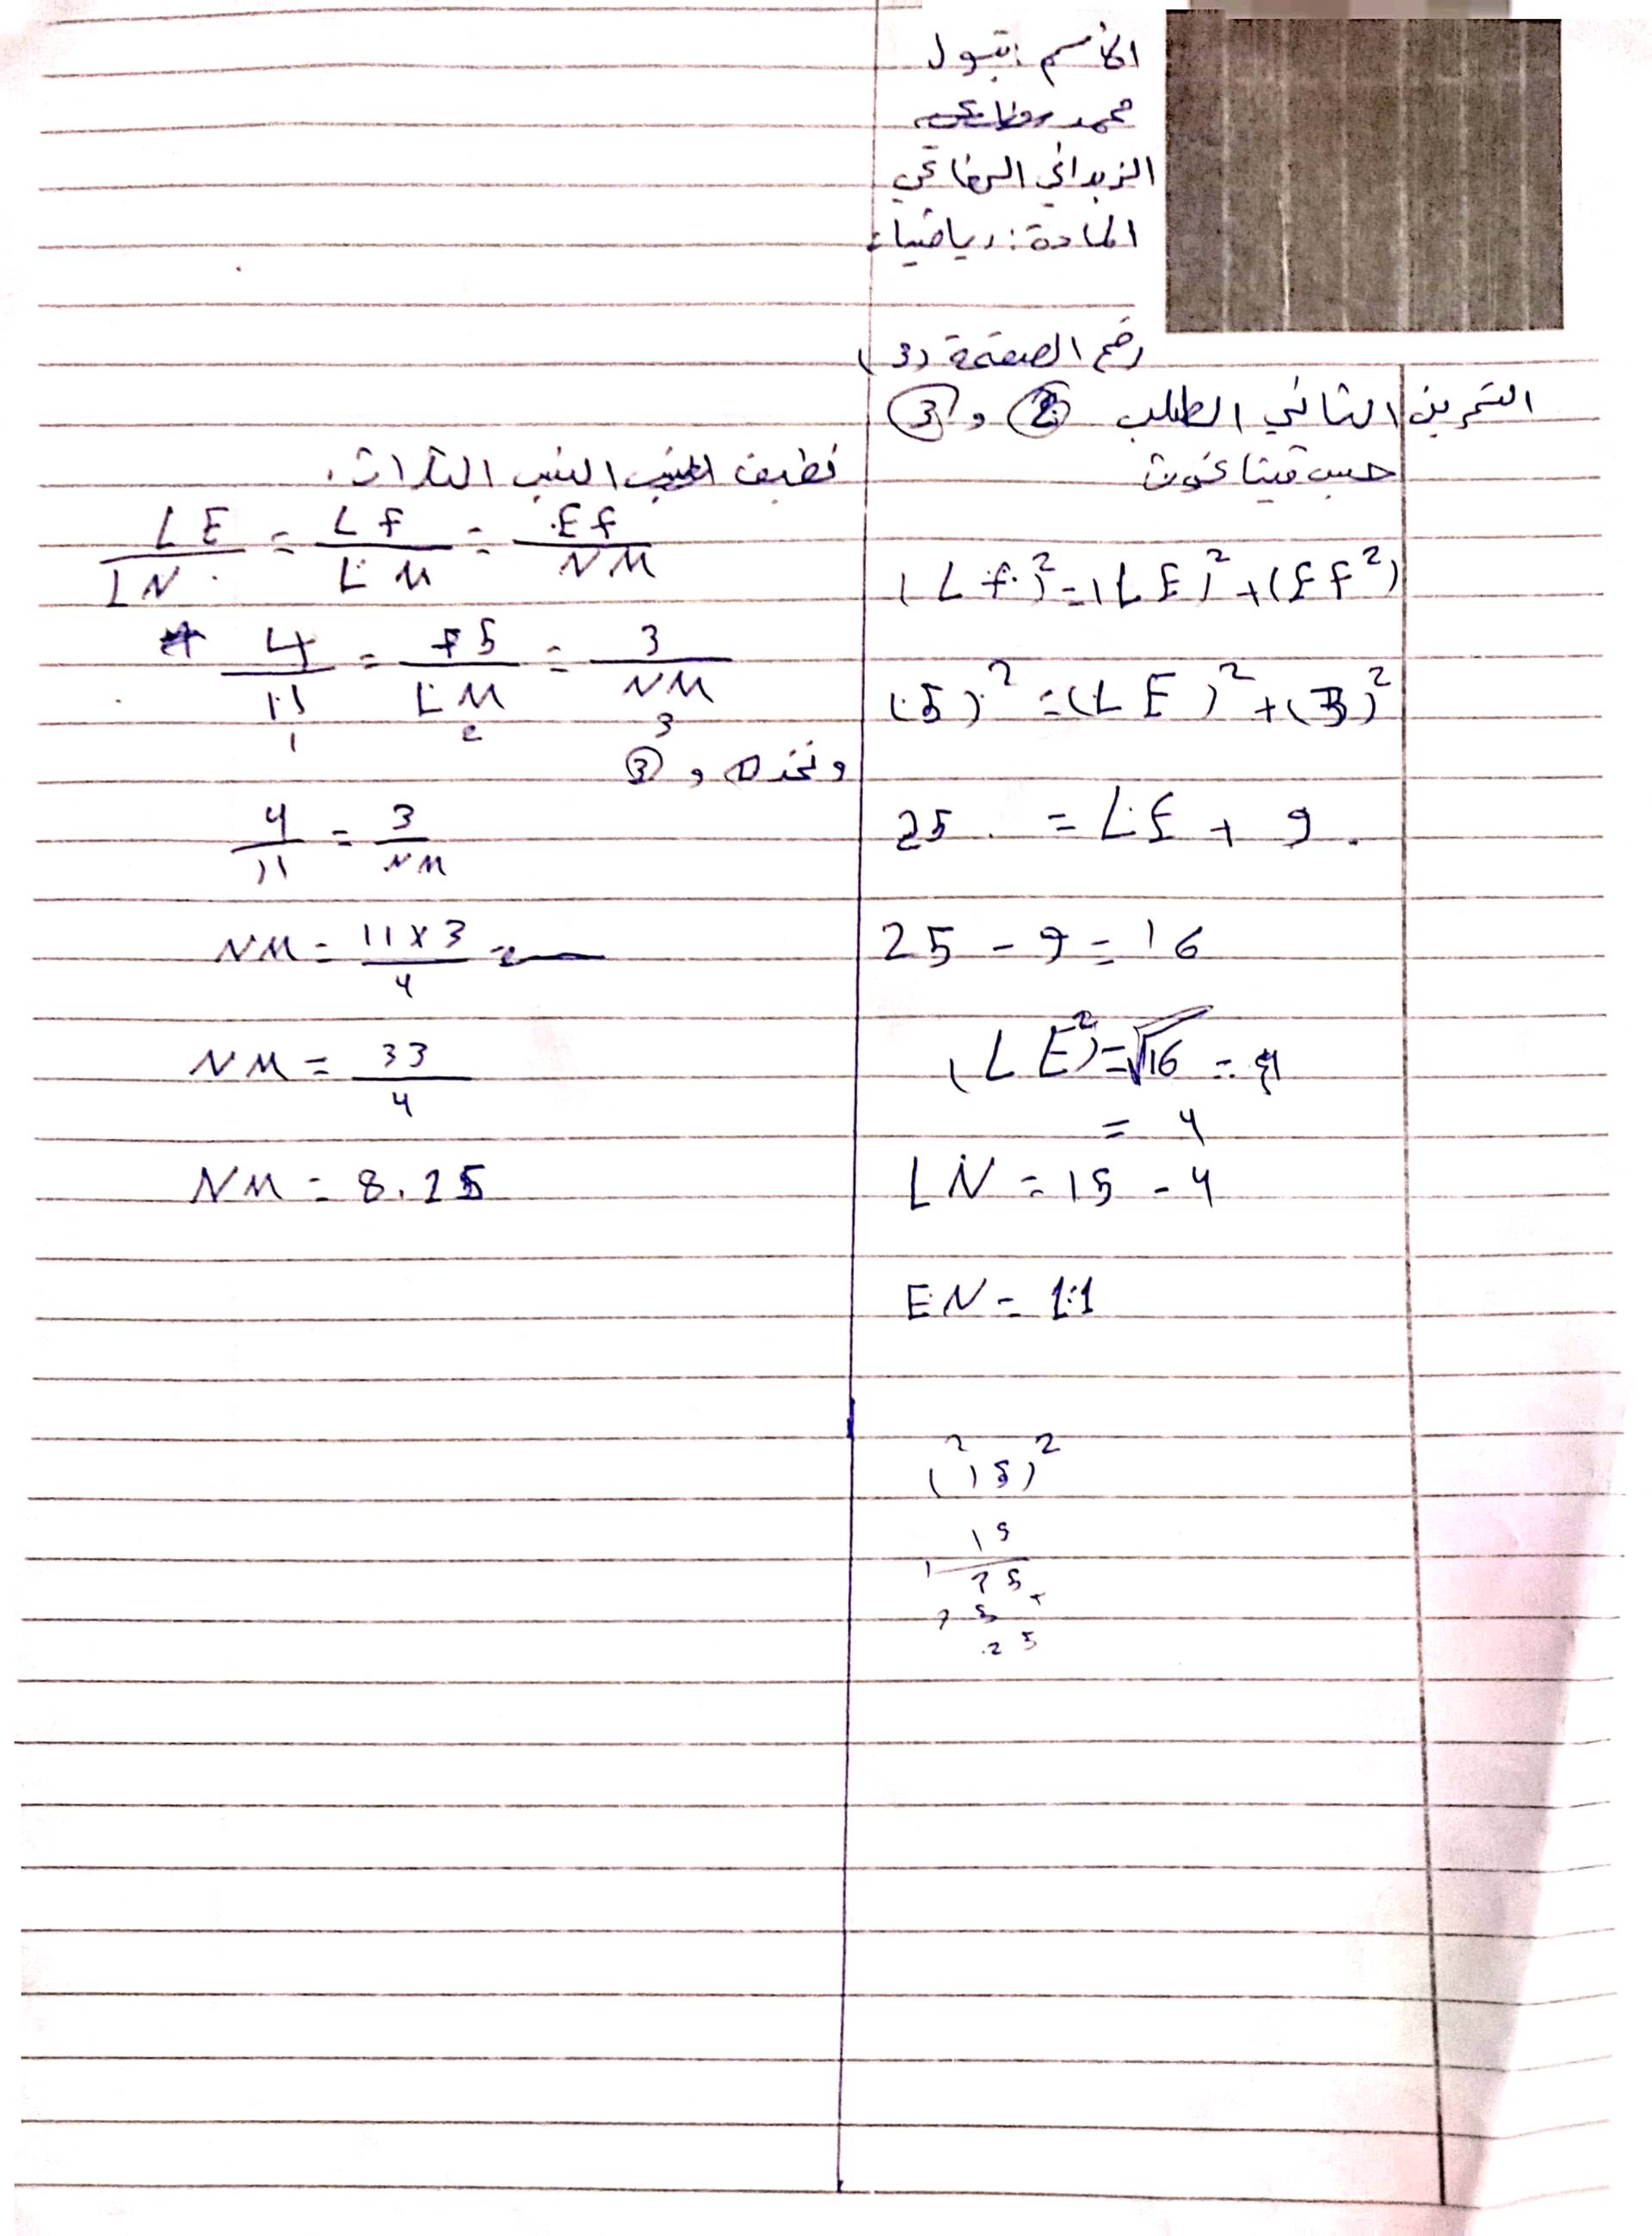 الأسم : بتول
محمد
الزبداني الرفاعي
المادة : رياضيات
رقم الصفحة (3)
التمرين الثاني الطلب ② و ③
حسب فيتاغوث
(LF)² = (LE)² + (EF²)
(5)² = (LE)² + (3)²
25 = LE + 9
25 - 9 = 16
(LE²) = √16 =
= 4
LN = 15 - 4
EN = 11
(15)²
15
75
25
نطبف النسب الثلاث.
LE/LN = LF/LM = EF/NM
4/11 = 5/LM = 3/NM
1 2 3
ونخذ ① و ③
4/11 = 3/NM
NM = 11 x 3/4 =
NM = 33/4
NM = 8.25